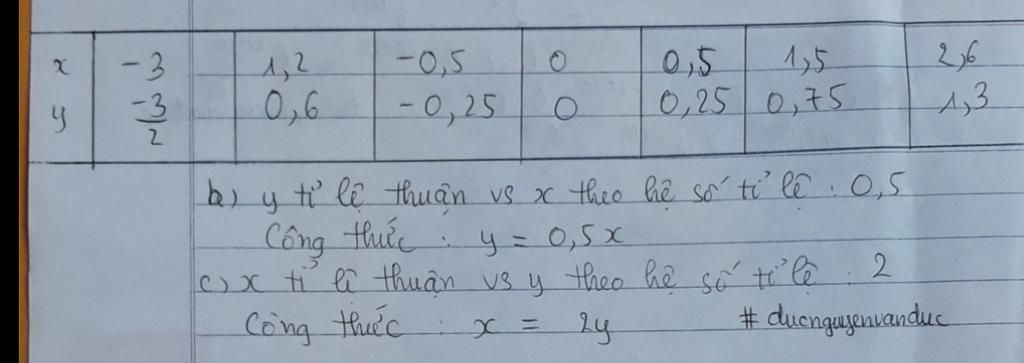 x -3 1,2 -0,5 0 0,5 1,5 2,6
y -3/2 0,6 -0,25 0 0,25 0,75 1,3
b) y tỉ lệ thuận vs x theo hệ số tỉ lệ : 0,5
Công thức : y = 0,5x
c) x tỉ lệ thuận vs y theo hệ số tỉ lệ : 2
Công thức : x = 2y # ducnguyenvanduc